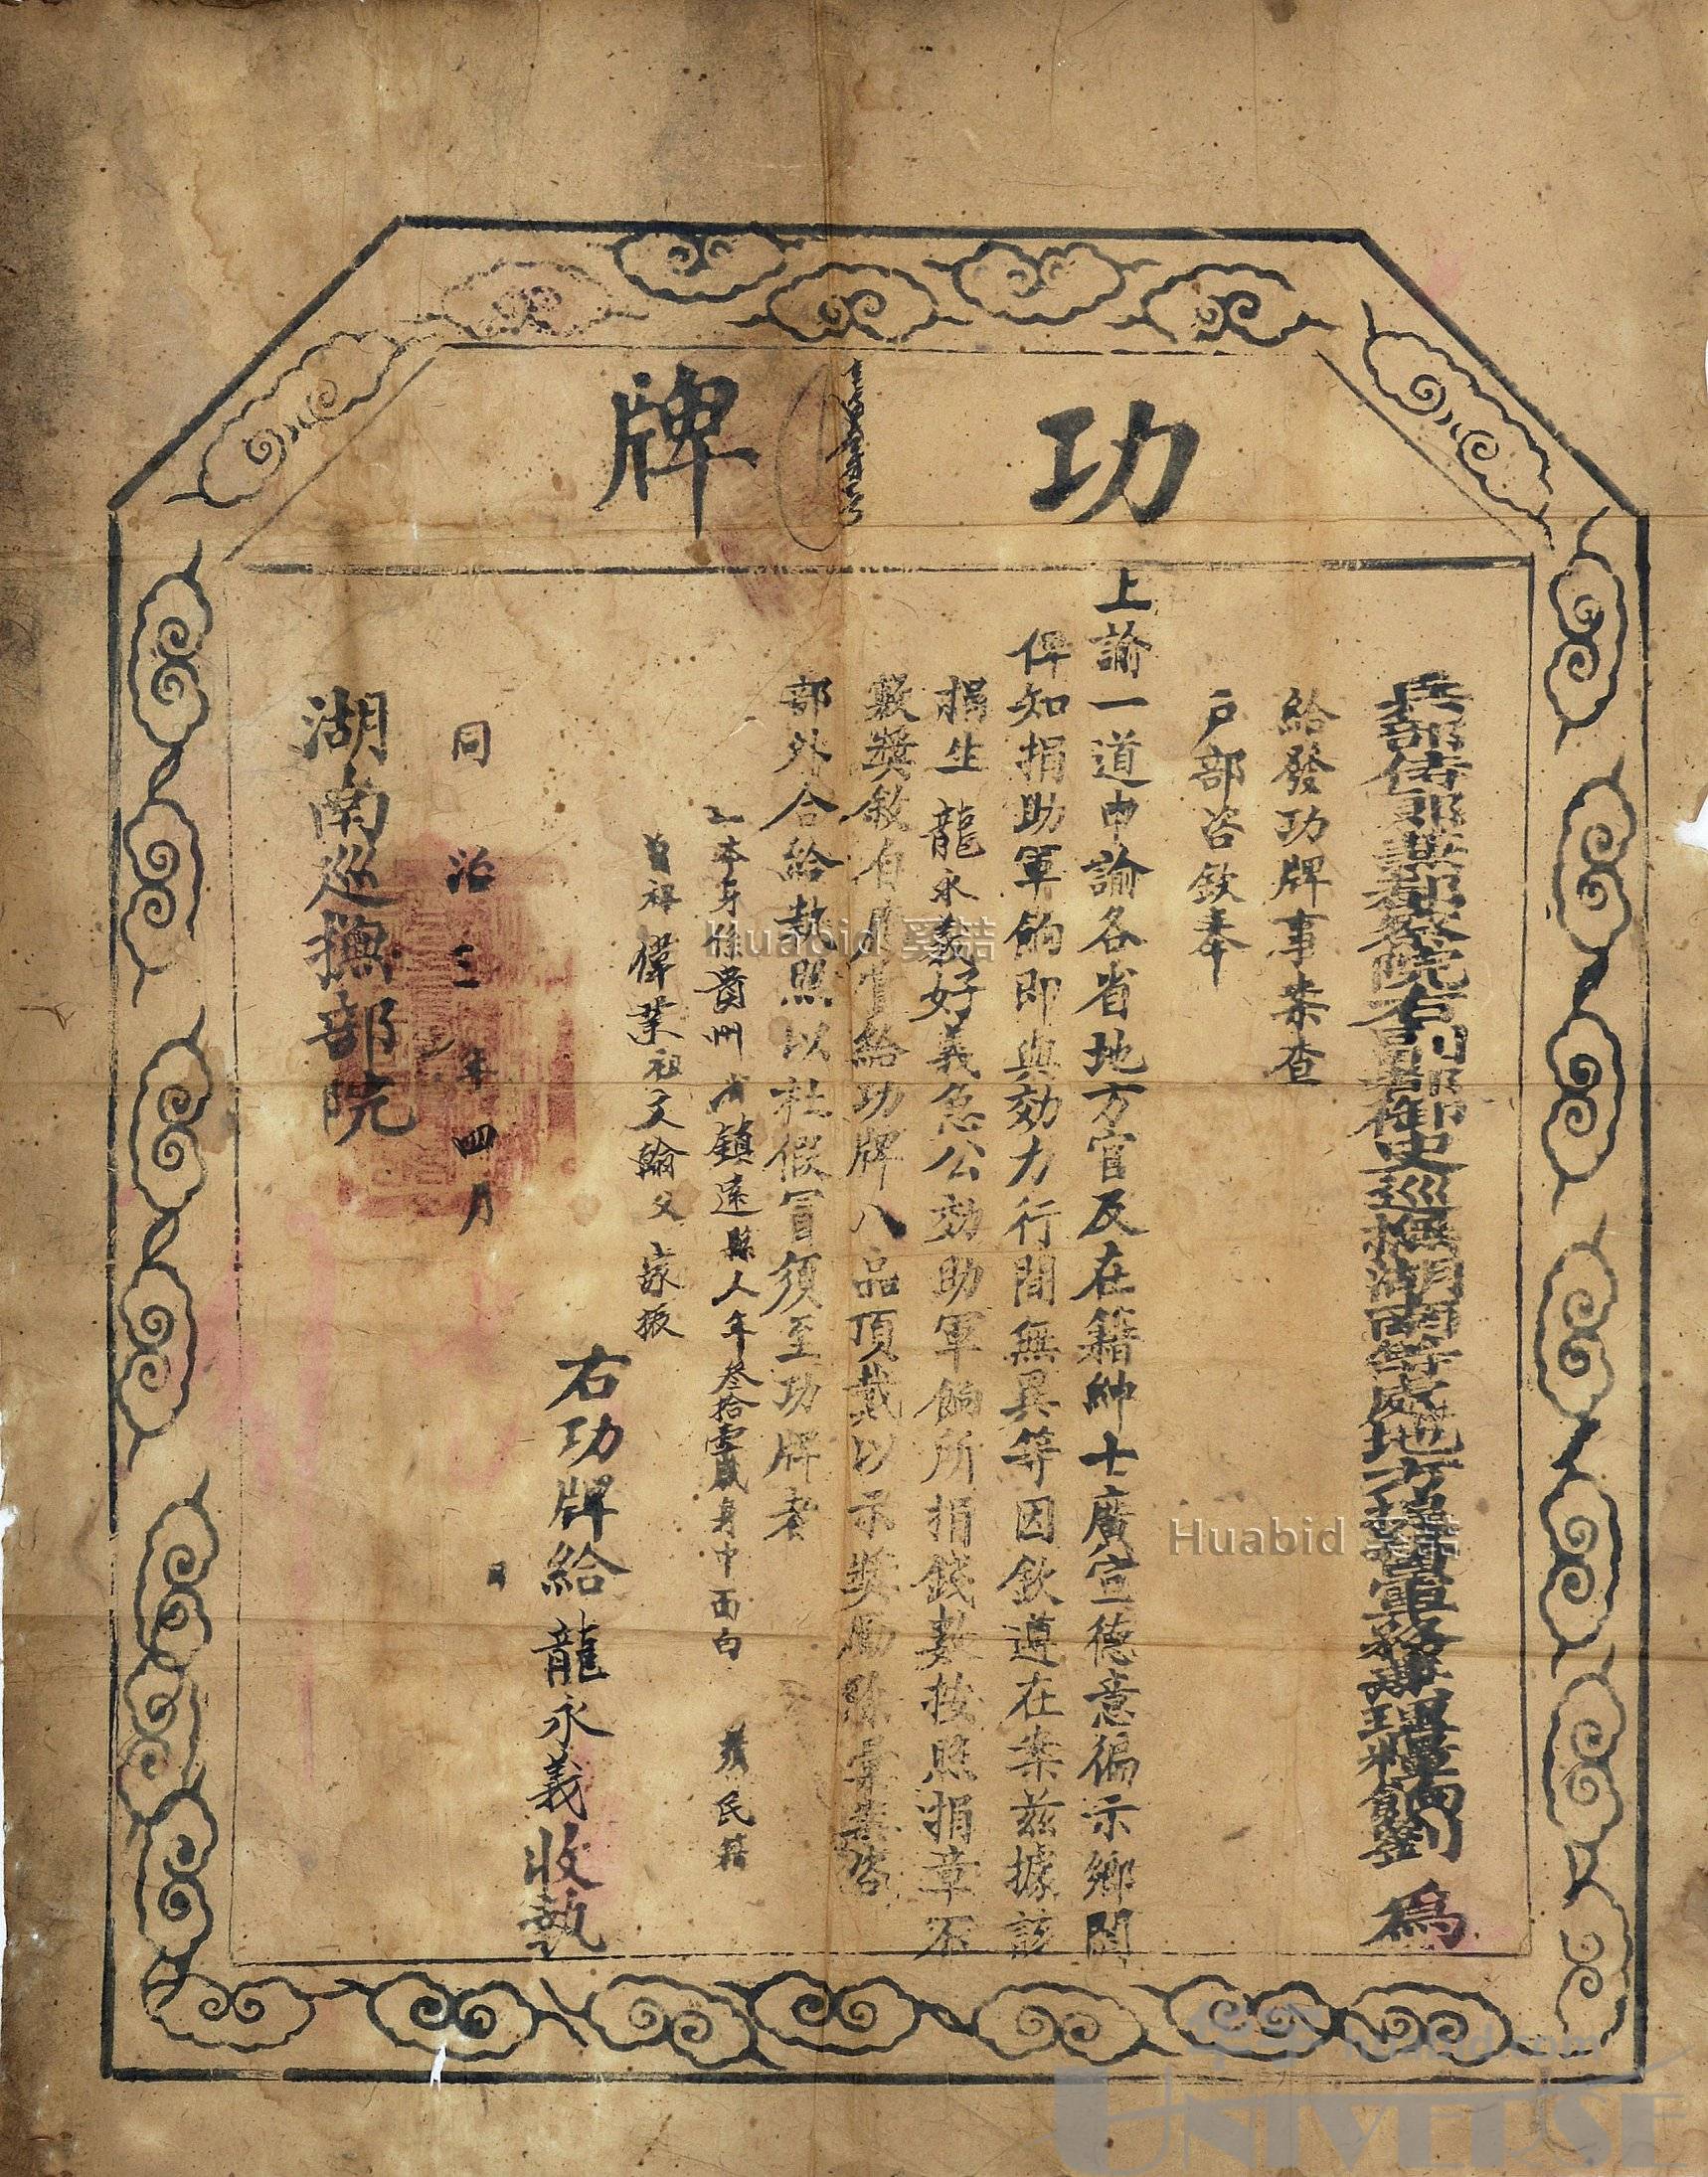 功牌
兵部侍郎兼都察院右副都御史巡撫湖南等處地方提督軍務兼理糧餉劉 為
給發功牌事案查
戶部咨欽奉
上諭一道申諭各省地方官及在籍紳士廣宣德意徧示鄉閭
俾知捐助軍餉即與効力行間無異等因欽遵在案茲據該
捐生龍永義好義急公効助軍餉所捐錢數按照捐章不
數獎敘自 給功牌八品頂戴以示獎勵除彙案咨
部外合給執照以杜假冒須至功牌者
本身係貴州省鎮遠縣人年叁拾壹歲身中面白 民籍
曾祖偉業祖文翰父家振
右功牌給龍永義收執
同治三年四月 日
湖南巡撫部院
Huabid
Huabid
UNIVERSE